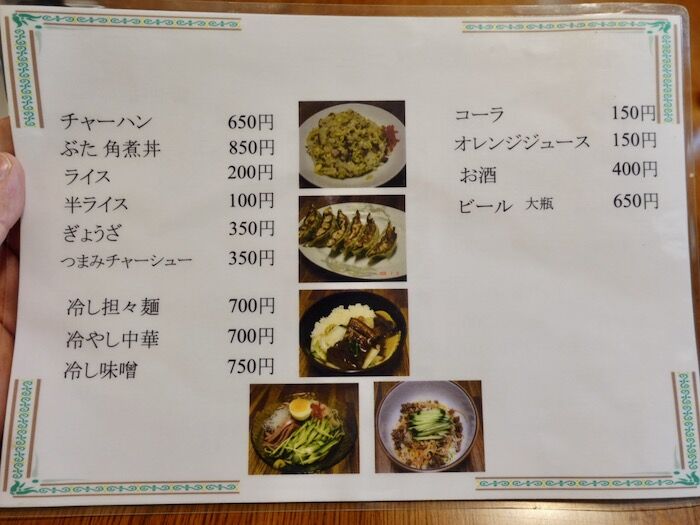 チャーハン 650円
ぶた 角煮丼 850円
ライス 200円
半ライス 100円
ぎょうざ 350円
つまみチャーシュー 350円
冷し担々麺 700円
冷やし中華 700円
冷し味噌 750円
コーラ 150円
オレンジジュース 150円
お酒 400円
ビール 大瓶 650円